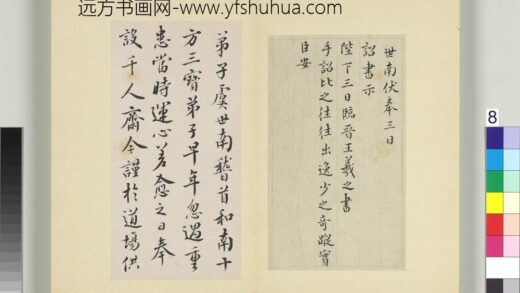 远方书画网-www.yfshuhua.com
世南伏奉三日
詔書示
陛下三日臨晉王羲之書
手詔比之往往出逸少之奇蹤實
臣安
弟子虞世南稽首和南十
方三寶弟子早年忽遇重
患當時運心差愈之日奉
設千人齋今謹於道場供
8